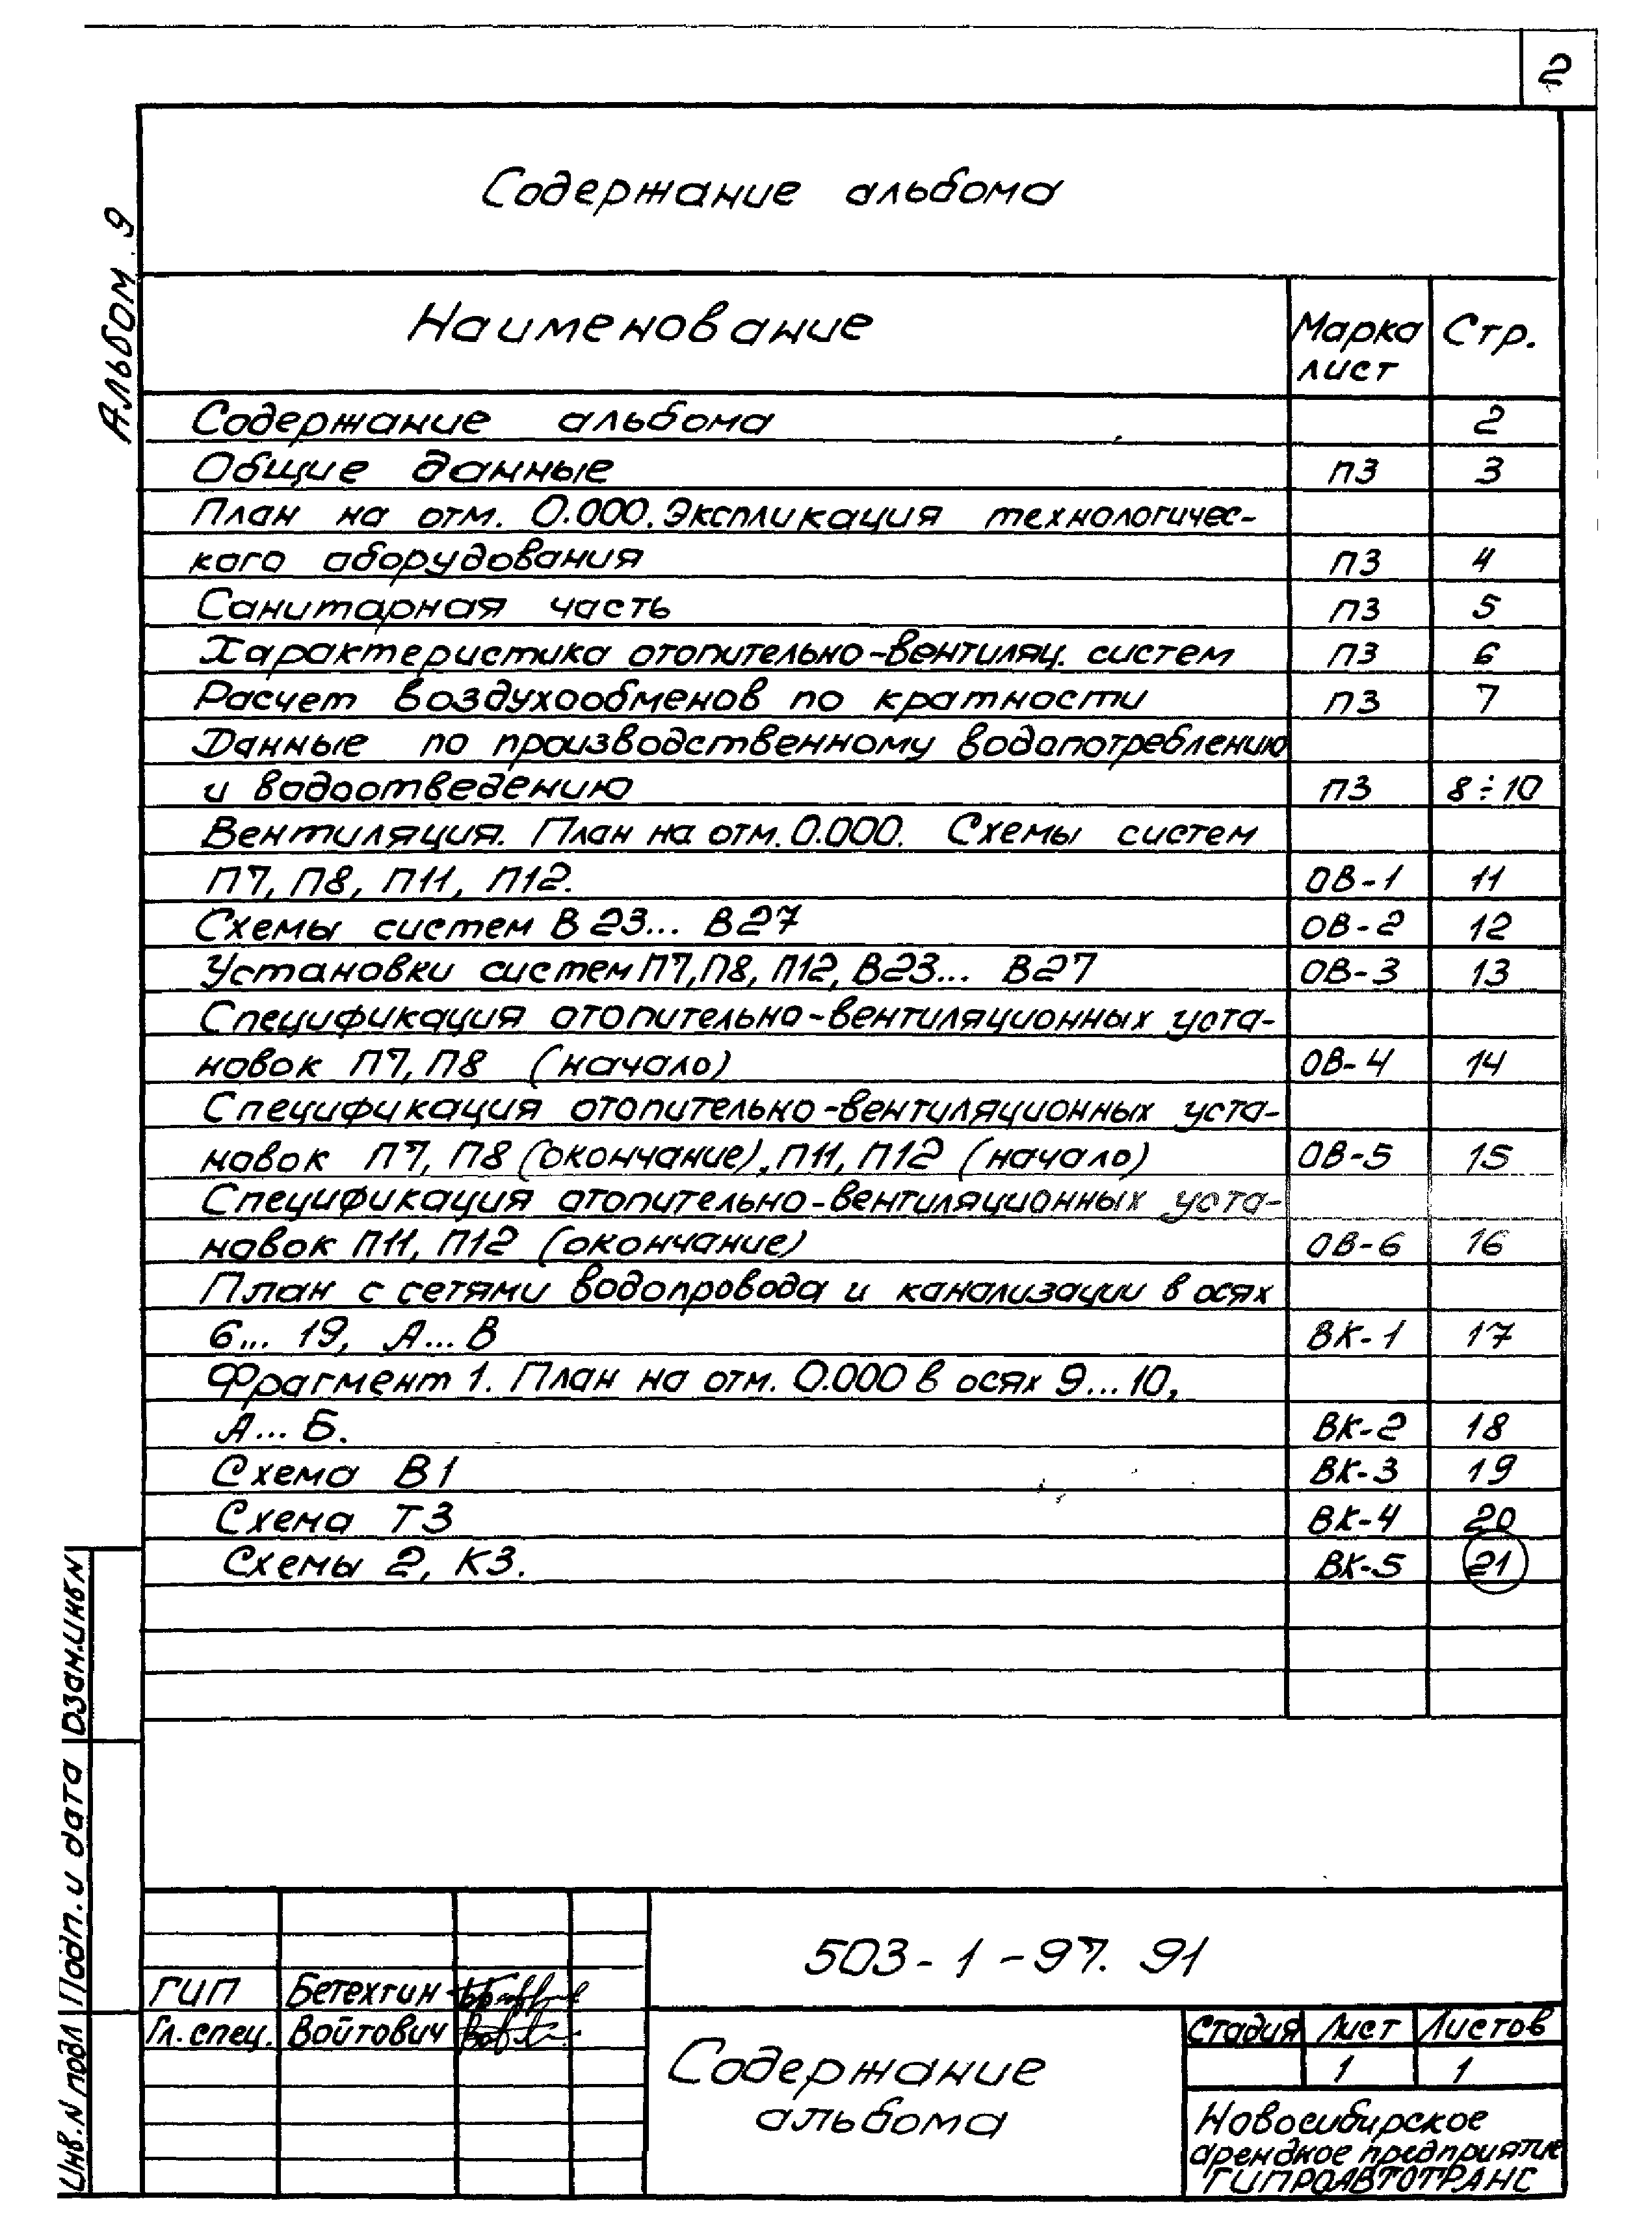 2
Содержание альбома
Альбом 9
Наименование Марка лист Стр.
Содержание альбома 2
Общие данные ПЗ 3
План на отм. 0.000. Экспликация технологичес-
кого оборудования ПЗ 4
Санитарная часть ПЗ 5
Характеристика отопительно-вентиляц. систем ПЗ 6
Расчет воздухообменов по кратности ПЗ 7
Данные по производственному водопотреблению
и водоотведению ПЗ 8÷10
Вентиляция. План на отм. 0.000. Схемы систем
П7, П8, П11, П12. ОВ-1 11
Схемы систем В23... В27 ОВ-2 12
Установки систем П7, П8, П12, В23... В27 ОВ-3 13
Спецификация отопительно-вентиляционных уста-
новок П7, П8 (начало) ОВ-4 14
Спецификация отопительно-вентиляционных уста-
новок П7, П8 (окончание), П11, П12 (начало) ОВ-5 15
Спецификация отопительно-вентиляционных уста-
новок П11, П12 (окончание) ОВ-6 16
План с сетями водопровода и канализации в осях
6... 19, А... В ВК-1 17
Фрагмент 1. План на отм. 0.000 в осях 9...10,
А... Б. ВК-2 18
Схема В1 ВК-3 19
Схема Т3 ВК-4 20
Схемы 2, К3. ВК-5 21
Взам.инв N
Подп. и дата
Инв. N подл
503-1-97.91
ГИП Бетехтин
Гл. спец. Войтович
Содержание
альбома
Стадия Лист Листов
1 1
Новосибирское
арендное предприятие
ГИПРОАВТОТРАНС